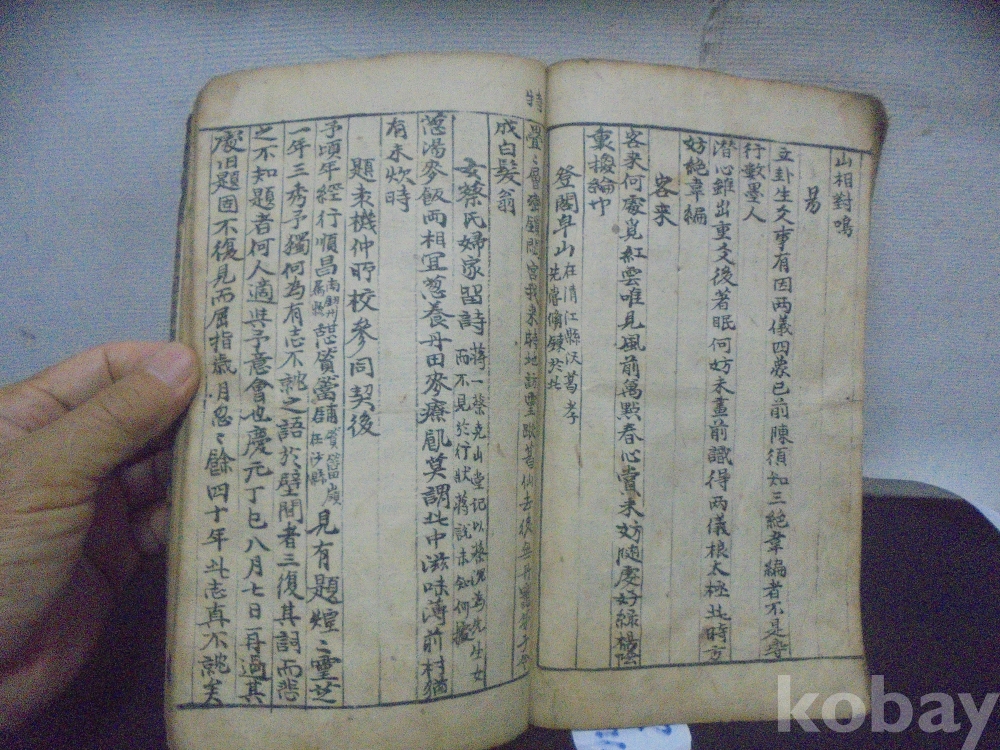 山相對鳴
易
立卦生爻事有因两儀四象已前陳須知三絶韋編者不是尋
行数墨人
潛心雖出重爻後著眼何妨未畫前識得两儀根太極此時方
好絶韋編
客来
客来何處覓紅雲唯見風前萬點春心賞未妨隨處好綠楊陰
裏撥綸巾
登閤皁山
在清江縣漢葛孝
先嘗脩錬於此
疊〻層
成白髮翁
女蔡氏婦家留詩
蔣一葵堯山堂记以蔡沈為先生女
而不見於行狀蔣説未知何據
葱湯麥飯两相冝葱養丹田麥療飢莫謂此中滋味薄前村猶
有未炊時
題袁機仲所校參同契後
予頃年經行順昌
南劒州
属縣
憩篔簹鋪
見有題煌〻靈芝
一年三秀予獨何為有志不就之語於壁間者三復其詞而悲
之不知題者何人適與予意會也慶元丁巳八月七日再過其
處旧題固不復見而屈指歳月忽〻餘四十年此志真不就矣
kobay